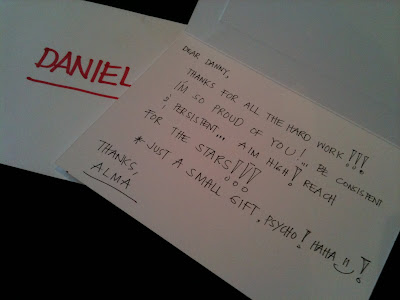 DANIEL
DEAR DANNY,
THANKS FOR ALL THE HARD WORK!!!
I'M SO PROUD OF YOU! ... BE CONSISTENT
& PERSISTENT... AIM HIGH! REACH
FOR THE STARS!!!
* JUST A SMALL GIFT, PSYCHO! HAHA!!
THANKS,
ALMA